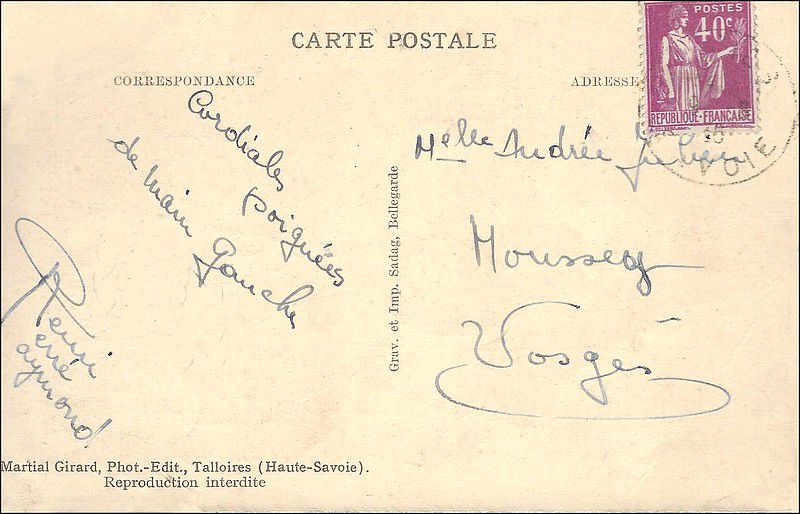 CARTE POSTALE
CORRESPONDANCE
ADRESSE
POSTES
40c
REPUBLIQUE-FRANÇAISE
VOIE
Cordiales
poignées
de main
Gauche
Melle Andrée Julien
Moussey
Vosges
Rémi
erré
aymond
Grav. et Imp. Sadag, Bellegarde
Martial Girard, Phot.-Edit., Talloires (Haute-Savoie).
Reproduction interdite